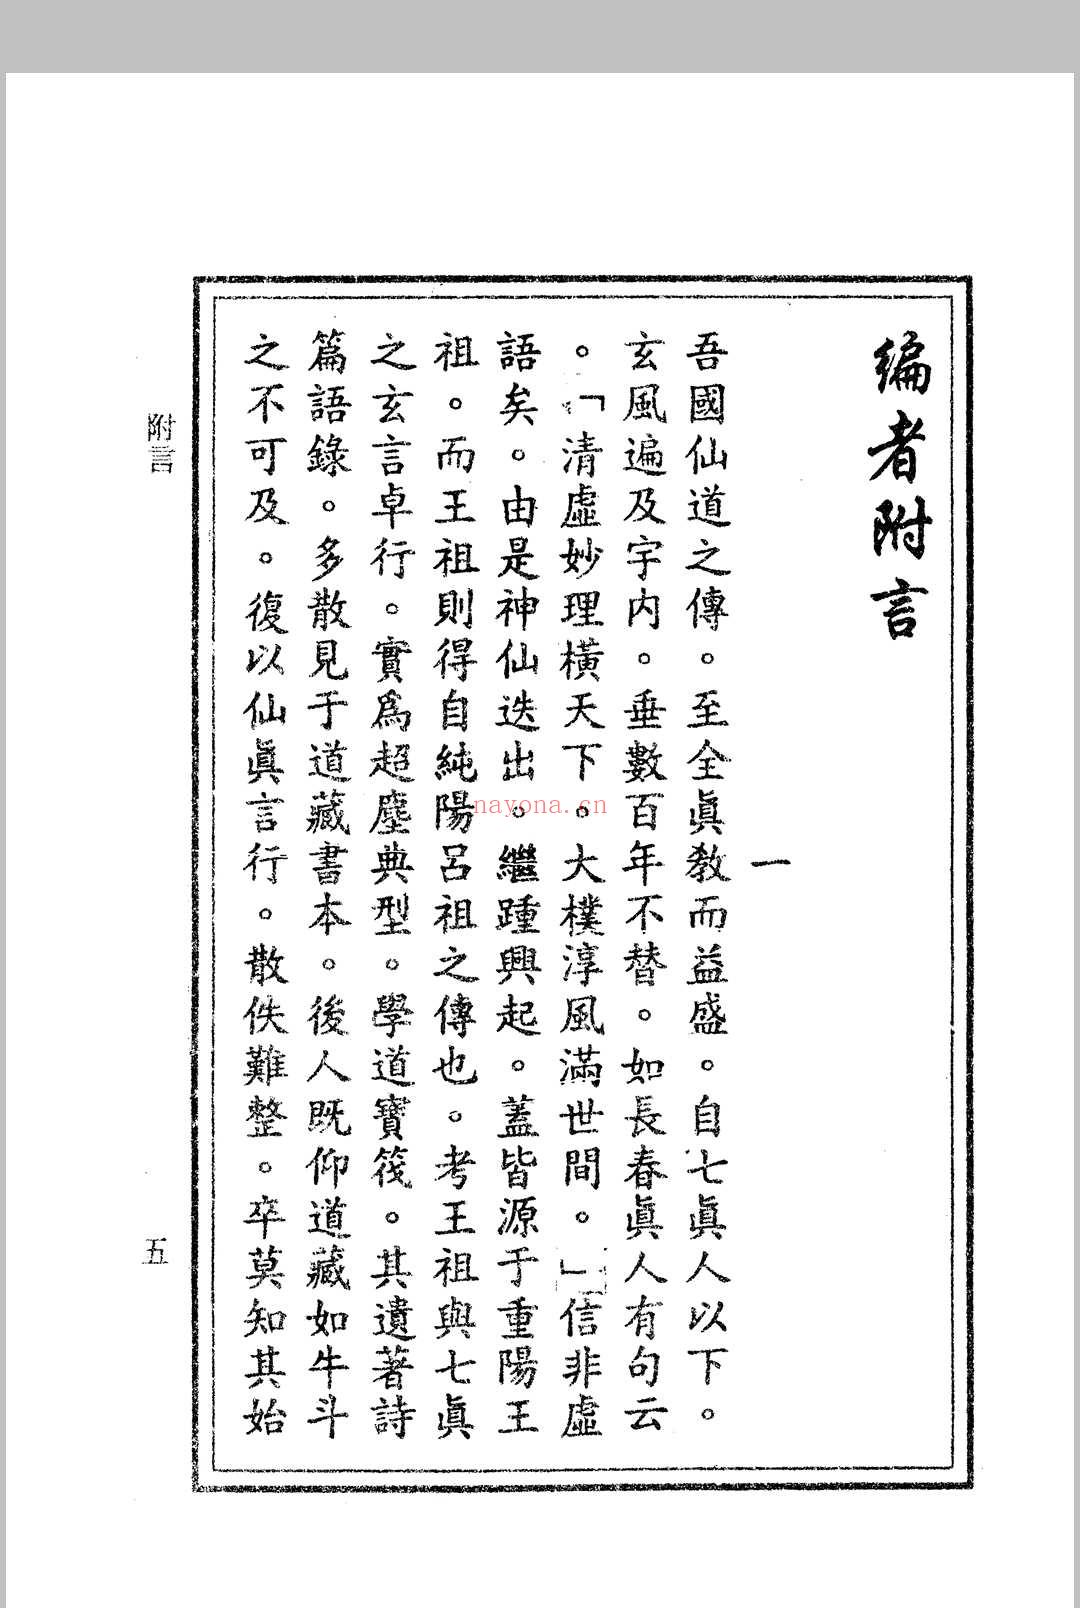 編者附言
一
吾國仙道之傳。至全眞教而益盛。自七眞人以下。
玄風遍及宇内。垂數百年不替。如長春眞人有句云
。「清虛妙理橫天下。大樸淳風滿世間。」信非虛
語矣。由是神仙迭出。繼踵興起。蓋皆源于重陽王
祖。而王祖則得自純陽呂祖之傳也。考王祖與七眞
之玄言卓行。實爲超塵典型。學道寶筏。其遺著詩
篇語錄。多散見于道藏書本。後人既仰道藏如牛斗
之不可及。復以仙眞言行。散佚難整。卒莫知其始
附言
五
nayona.cn